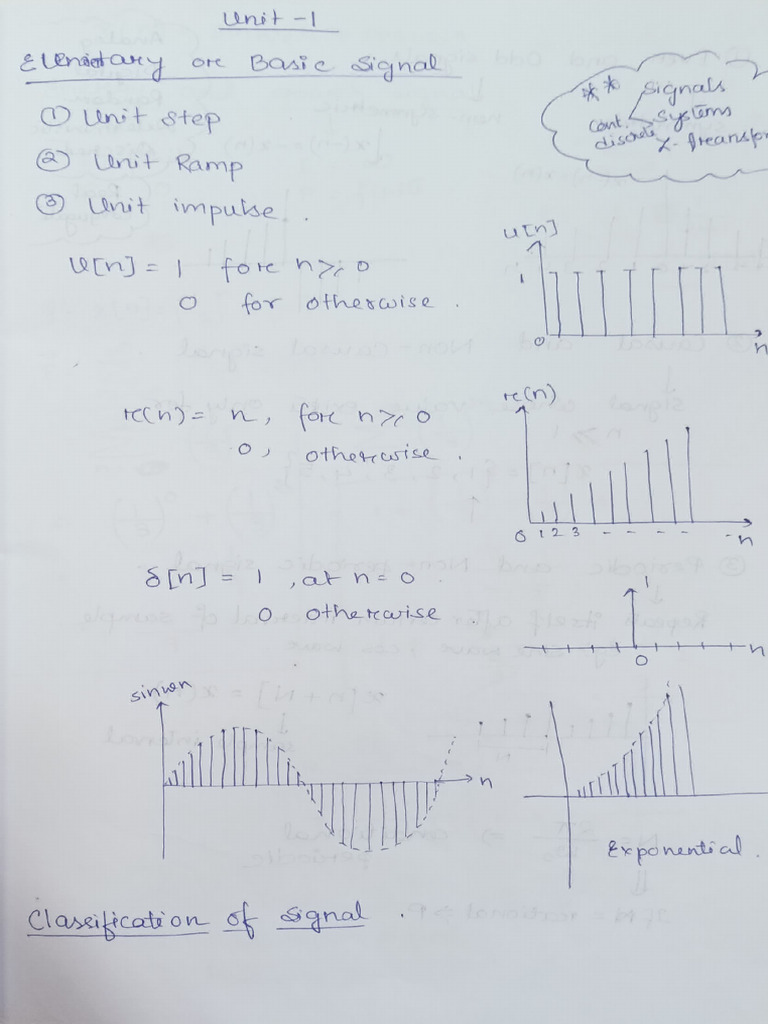 Unit - 1
Elementary or Basic Signal
** Signals
cont. Systems
discrete Z-transfo
① Unit Step
② Unit Ramp
③ Unit impulse.
U[n] = 1 for n ≥ 0
0 for otherwise.
U[n]
1
0
n
r(n) = n, for n ≥ 0
0, otherwise.
r(n)
0 1 2 3 - - - - -
n
δ[n] = 1, at n = 0
0 otherwise.
1
0
n
sinωn
n
Exponential.
Classification of Signal.